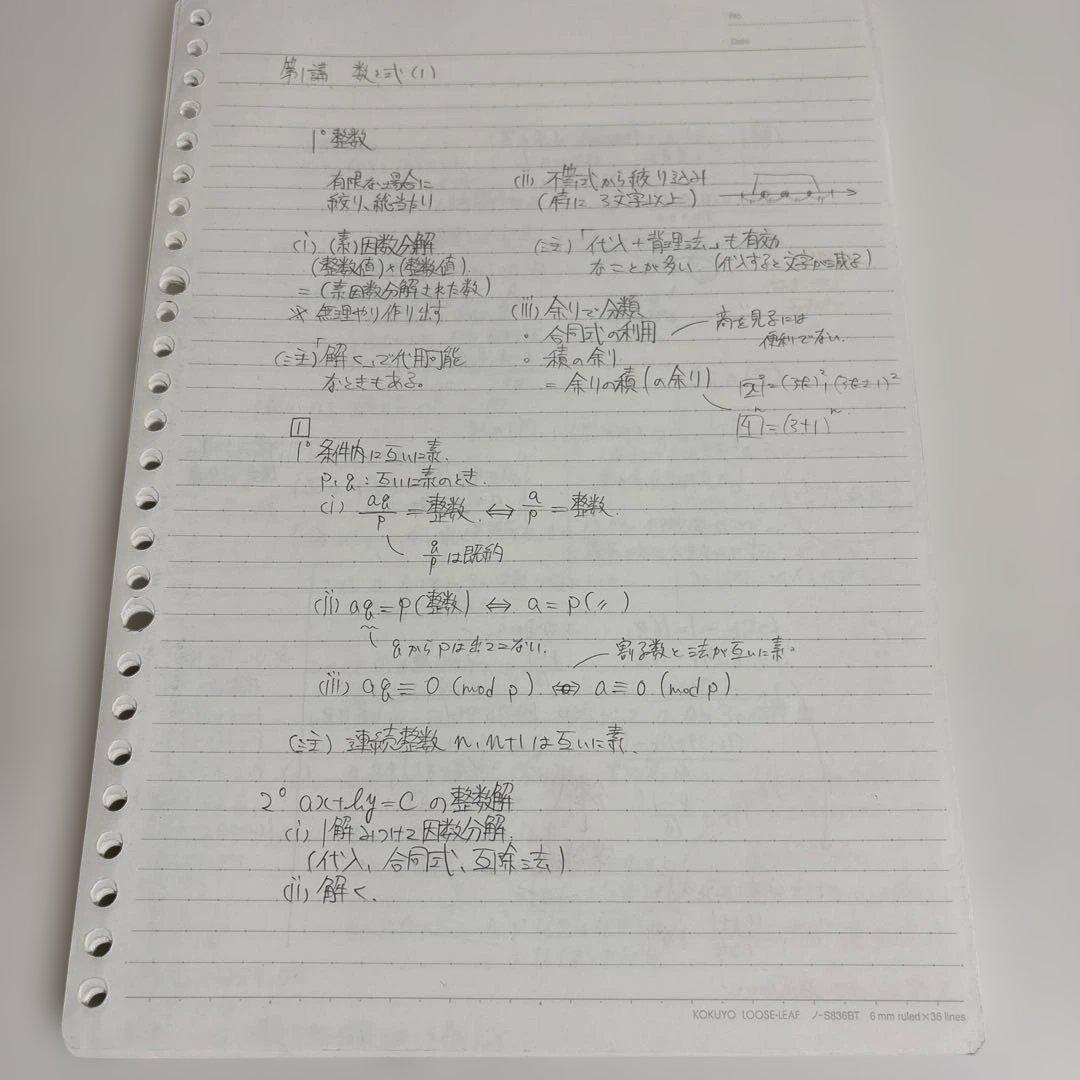 No.
Date
第1講 数と式(1)
1° 整数
有限な場合に
絞り、総当たり
(i) (素)因数分解
(整数値)×(整数値)
=(素因数分解された数)
※ 無理やり作り出す
(注)「解く」で代用可能
なときもある。
(ii) 不等式から絞り込み
(特に3文字以上)
(注)「代入+背理法」も有効
なことが多い (代入すると文字が減る)
(iii) 余りで分類
・合同式の利用
商を見るには
便利でない.
・積の余り
=余りの積(の余り)
x² = (3k)², (3k±1)²
4ⁿ = (3+1)ⁿ
1
1° 条件内に互いに素.
p, q : 互いに素のとき.
(i) aq/p = 整数. ⇔ a/p = 整数.
q/p は既約
(ii) aq = p(整数) ⇔ a = p(〃)
qからpは出てこない.
割る数と法が互いに素.
(iii) aq ≡ 0 (mod p) ⇔ a ≡ 0 (mod p).
(注) 連続整数 n, n+1 は互いに素.
2° ax+by=c の整数解
(i) 1解みつけて因数分解.
(代入, 合同式, 互除法)
(ii) 解く.
KOKUYO LOOSE-LEAF ノ-S836BT 6 mm ruled×36 lines